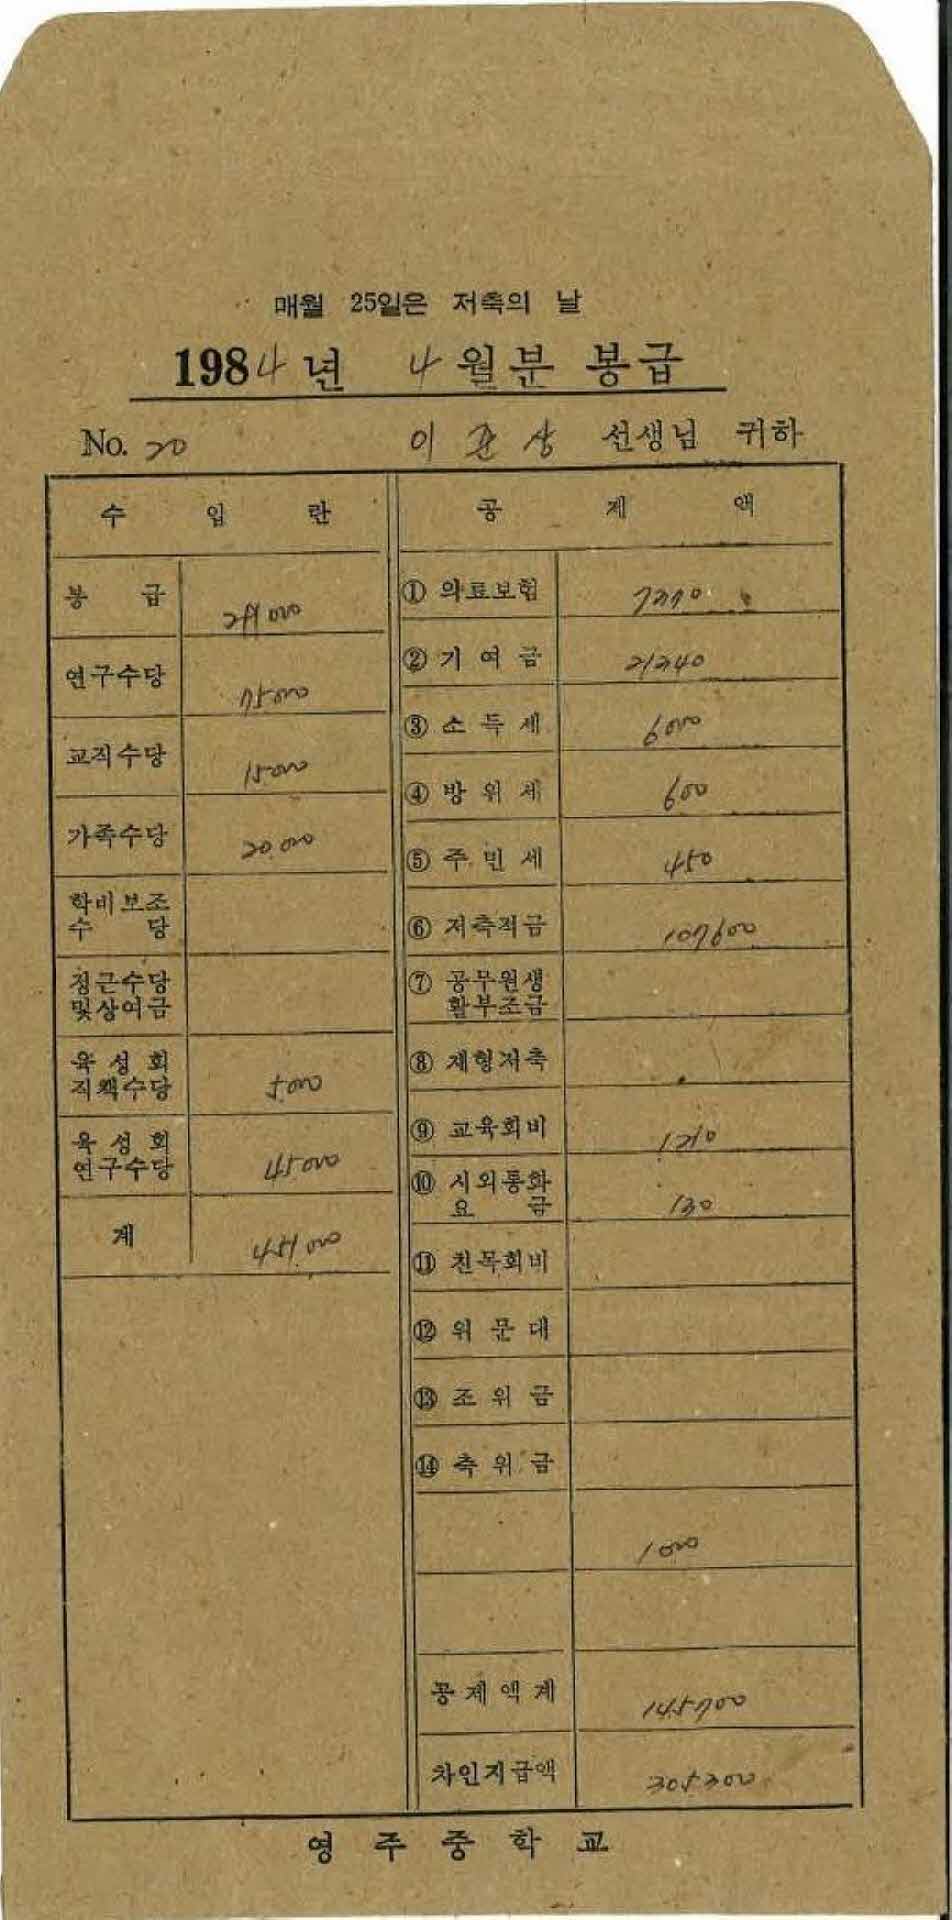 매월 25일은 저축의 날
1984년 4월분 봉급
No. 20 이 관 상 선생님 귀하
수 입 란
봉 급 291000
연구수당 75000
교직수당 15000
가족수당 20.000
학비보조
수 당
정근수당
및상여금
육 성 회
직책수당 5000
육 성 회
연구수당 45000
계 451.000
공 제 액
① 의료보험 7370
② 기 여 금 21340
③ 소 득 세 6000
④ 방 위 세 600
⑤ 주 민 세 450
⑥ 저축적금 107600
⑦ 공무원생
활부조금
⑧ 재형저축
⑨ 교육회비 1210
⑩ 시외통화
요 금 130
⑪ 친목회비
⑫ 위 문 대
⑬ 조 위 금
⑭ 축 위 금
1000
공 제 액 계 145700
차인지급액 305300
영 주 중 학 교